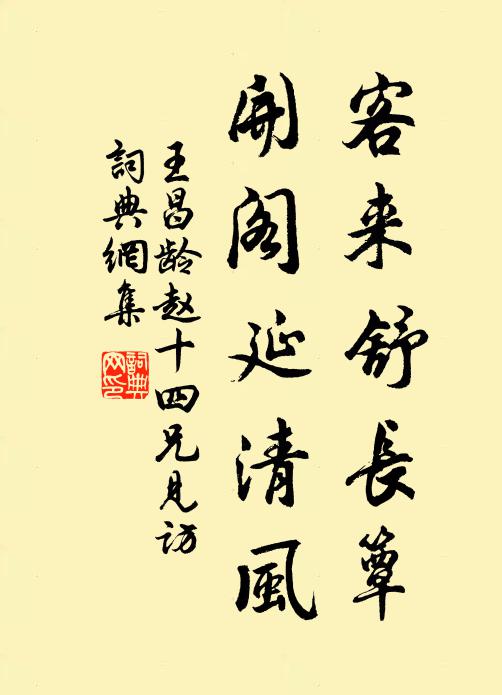 客来舒長簟
開阁延清風
王昌龄赵十四兄見访
詞典網集
詞典
网印